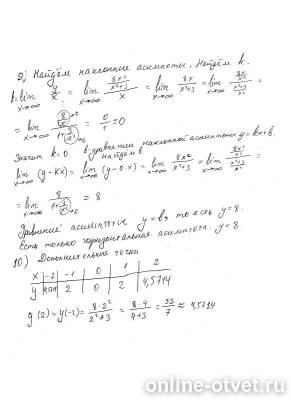 9) Найдём наклонные асимптоты. Найдём k.
k = lim x→∞ y/x = lim x→∞ (8x²/(x²+3))/x = lim x→∞ 8x/(x²+3) = lim x→∞ (8x/x²)/((x²+3)/x²) =
= lim x→∞ (8/x)/(1+3/x²) = 0/1 = 0
Значит k=0 в уравнении наклонной асимптоты y=kx+b.
Найдём b
lim x→∞ (y-kx) = lim x→∞ (y-0·x) = lim x→∞ 8x²/(x²+3) = lim x→∞ (8x²/x²)/((x²+3)/x²) =
= lim x→∞ 8/(1+3/x²) = 8
Уравнение асимптоты y=b, то есть y=8.
Есть только горизонтальная асимптота y=8
10) Дополнительные точки
x | -2 | -1 | 0 | 1 | 2
y | 4,5714 | 2 | 0 | 2 | 4,5714
y(2)=y(-2)= 8·2²/(2²+3) = 8·4/(4+3) = 32/7 ≈ 4,5714
online-otvet.ru